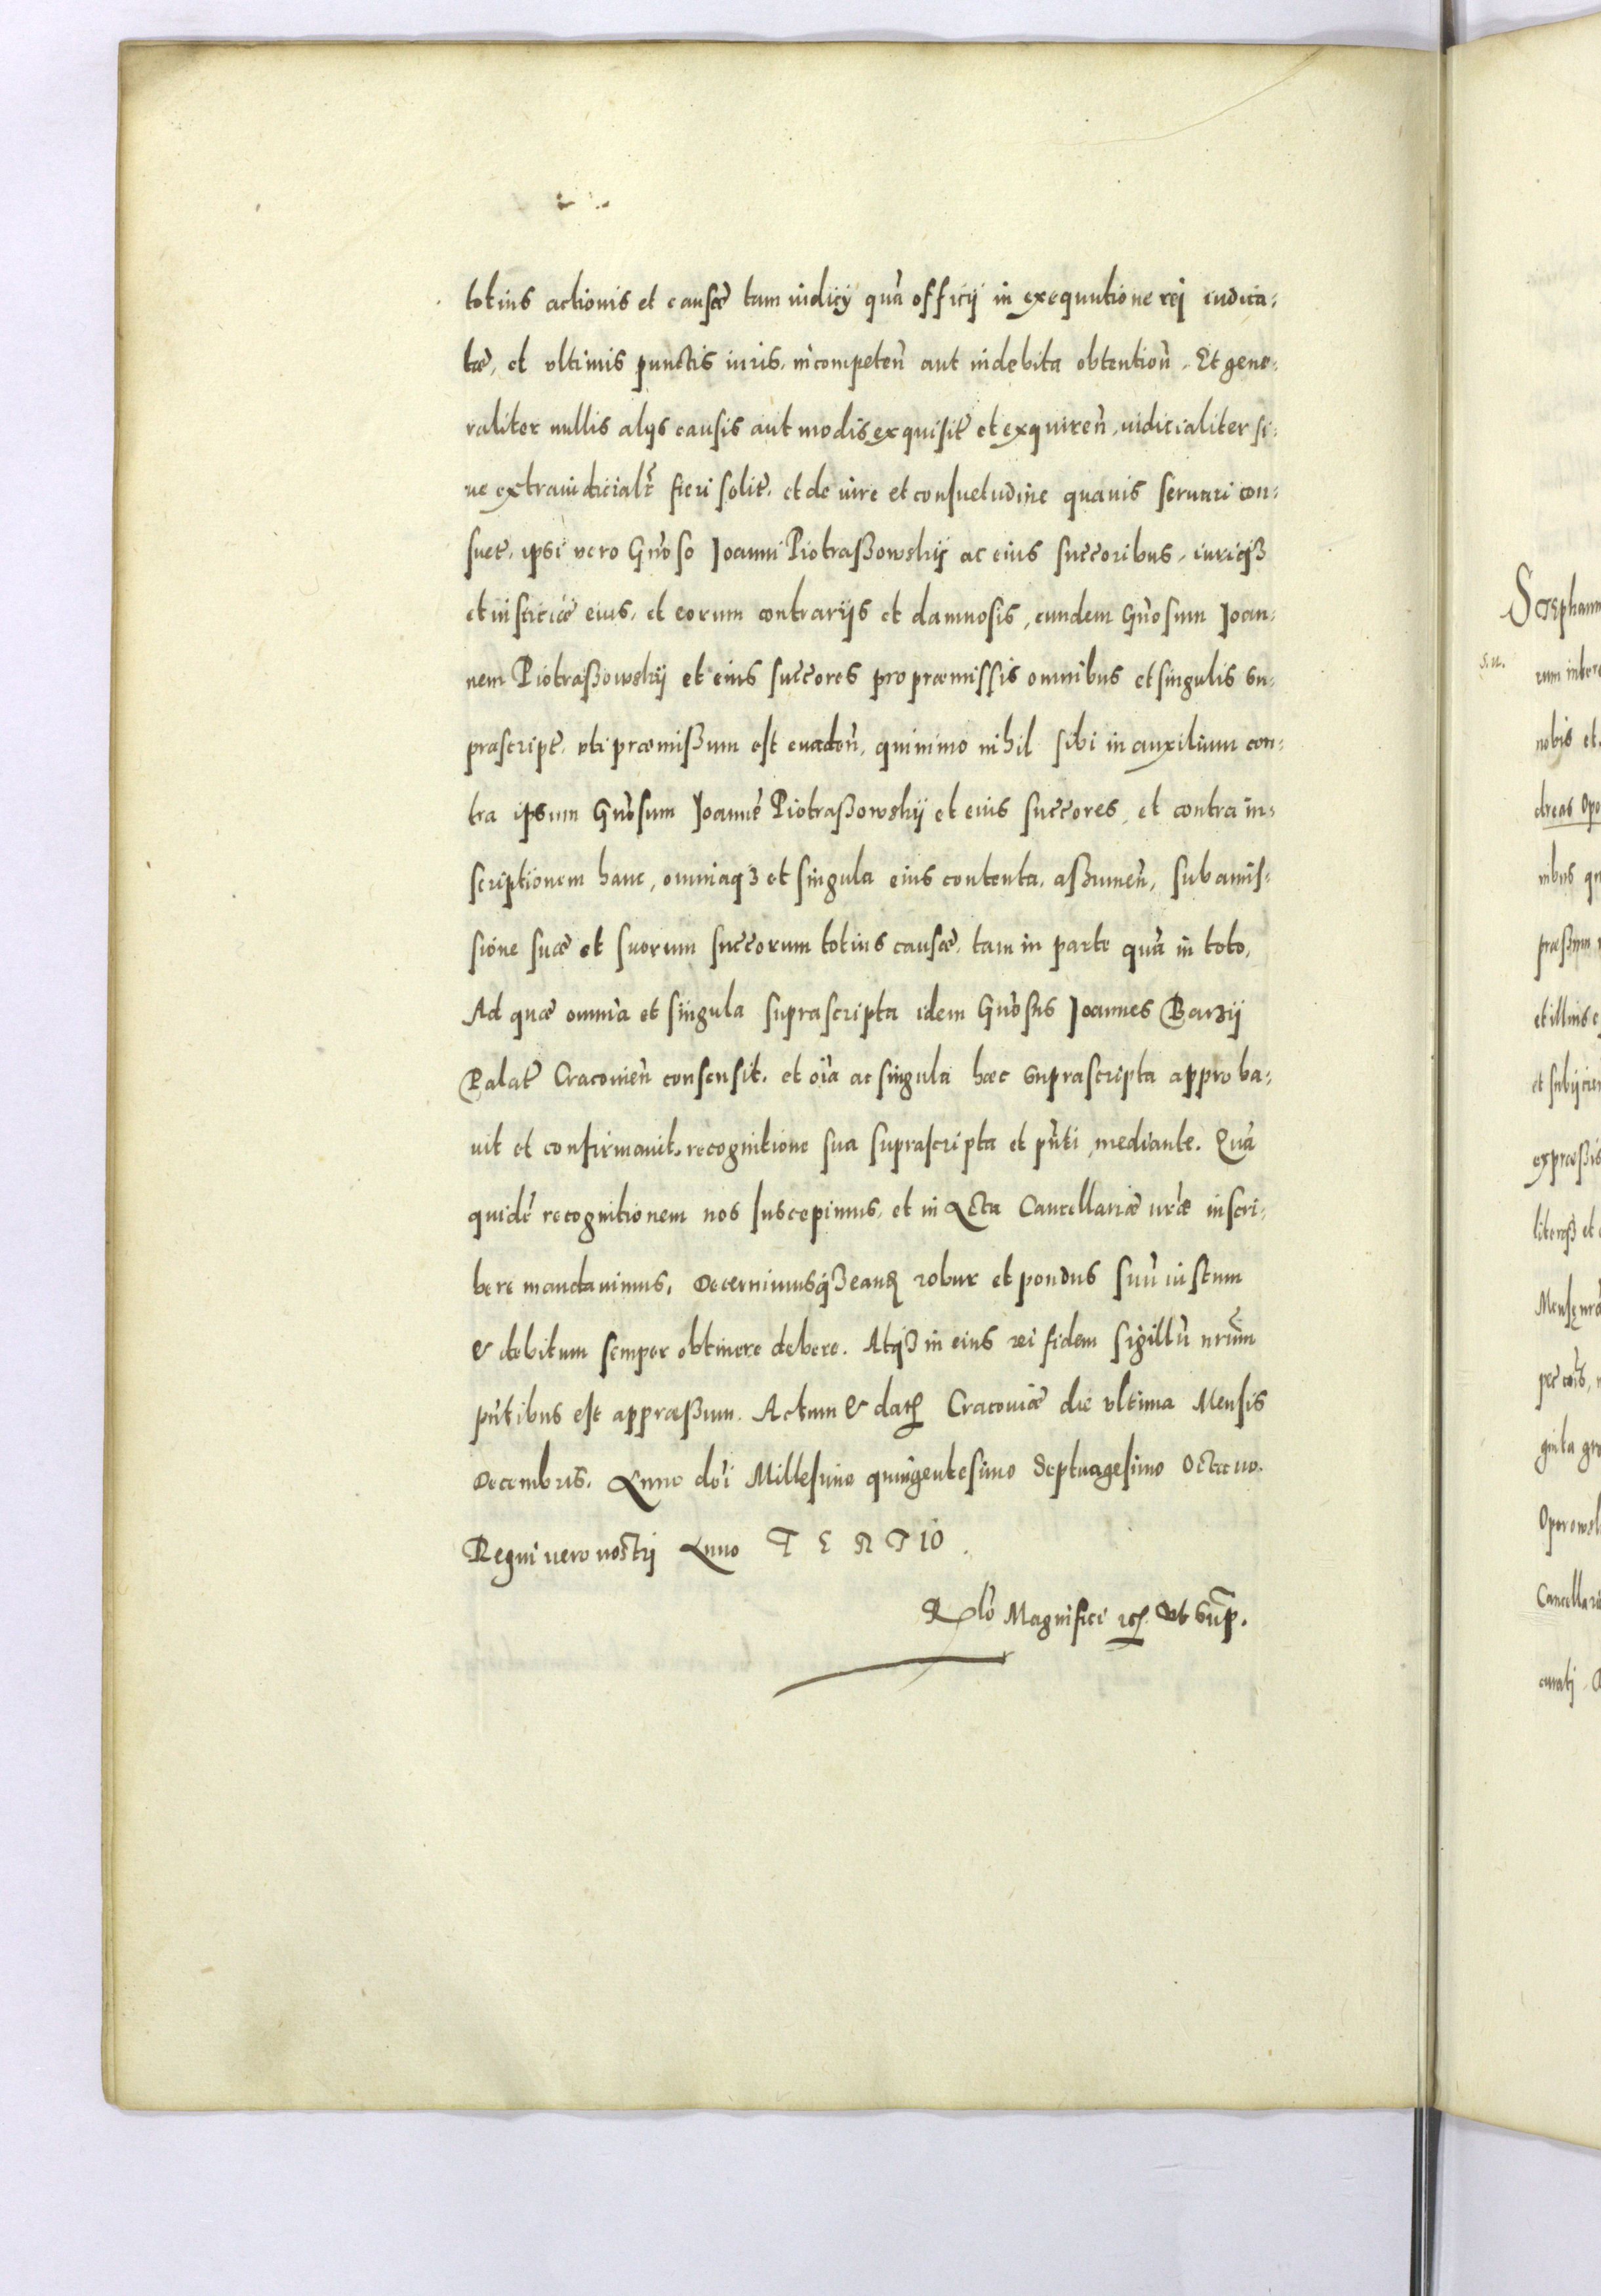 totius actionis et causæ tam iudicÿ quā officij in exequutione rej iudica:
tæ, et vltimis punctis iuris, incompeteñ aut indebita obtentioñ. Et gene:
raliter nullis alijs causis aut modis exquisit̃ et exquireñ, iudicialiter si:
ue extraiudicialr̃ fieri solit̃. et de iure et consuetudine quauis seruari con:
suet̃, ipsi vero Gño so Joanni Piotraßowskij ac eius succ̃oribus, iuriqȝ
et iusticiæ eius, et eorum contrarijs et damnosis, eundem Gñosum Joan:
nem Piotraßowskij et eius succ̃ores pro præmissis omnibus et singulis su:
prascript̃, vti præmißum est euadeñ, quinimo nihil sibi in auxilium con:
tra ipsum Gñosum Joannē Piotraßowskij et eius succ̃ores, et contra in:
scriptionem hanc, omniaqȝ et singula eius contenta, aßumeñ, sub amis:
sione suæ et suorum succ̃orum totius causæ, tam in parte quā in toto,
Ad quæ omnia et singula suprascripta idem Gñosus Joannes Barzij
Palat̃ Cracouieñ consensit. et oĩa ac singula hæc suprascripta approba:
uit et confirmauit, recognitione sua suprascripta et pñti, mediante. Quā
quidē recognitionem nos suscepimus, et in Acta Cancellariæ nr̃æ inscri:
bere mandauimus, Decernimusqȝ eand robur et pondus suū iustum
& debitum semper obtinere debere. Atqȝ in eius rei fidem sigillū nrũm
pñtibus est appræßum. Actum & dat Cracouiæ die vltima Mensis
Decembris. Anno dñi Millesimo quingentesimo Septuagesimo Octauo.
Regni uero nostrj Anno TERTIO.
Rlõ Magnifici etc Vt sup̃.
Stephann
rum inter
nobis et
dreas Opo
nibus qu
præßum
et illius e
et subijcie
expræßis
literisqȝ et
ginta gr
Operowsk
Cancellari